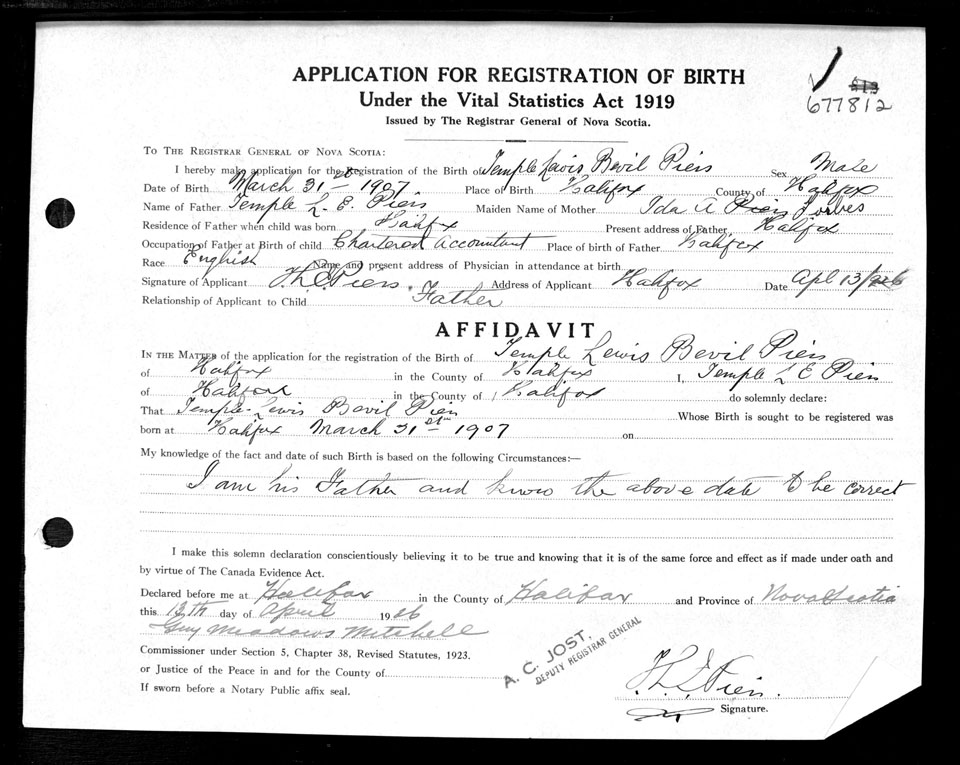 APPLICATION FOR REGISTRATION OF BIRTH
Under the Vital Statistics Act 1919
Issued by The Registrar General of Nova Scotia.
677812
TO THE REGISTRAR GENERAL OF NOVA SCOTIA:
I hereby make application for the Registration of the Birth of Temple Lewis Bevil Piers Sex Male
Date of Birth March 31st 1907 Place of Birth Halifax County of Halifax
Name of Father Temple L. E. Piers Maiden Name of Mother Ida A Piers Forbes
Residence of Father when child was born Halifax Present address of Father Halifax
Occupation of Father at Birth of child Chartered Accountant Place of birth of Father Halifax
Race English Name and present address of Physician in attendance at birth
Signature of Applicant T.L.E.Piers. Address of Applicant Halifax Date Apl 13/26
Relationship of Applicant to Child Father
AFFIDAVIT
IN THE MATTER of the application for the registration of the Birth of Temple Lewis Bevil Piers
of Halifax in the County of Halifax I, Temple L E Piers
of Halifax in the County of Halifax do solemnly declare:
That Temple Lewis Bevil Piers Whose Birth is sought to be registered was
born at Halifax March 31st 1907 on
My knowledge of the fact and date of such Birth is based on the following Circumstances:—
I am his Father and know the above date to be correct
I make this solemn declaration conscientiously believing it to be true and knowing that it is of the same force and effect as if made under oath and
by virtue of The Canada Evidence Act.
Declared before me at Halifax in the County of Halifax and Province of Nova Scotia
this 13th day of April 1926
Guy Meadows Mitchell
Commissioner under Section 5, Chapter 38, Revised Statutes, 1923.
or Justice of the Peace in and for the County of
If sworn before a Notary Public affix seal.
A. C. JOST,
DEPUTY REGISTRAR GENERAL
T.L.E Piers.
Signature.